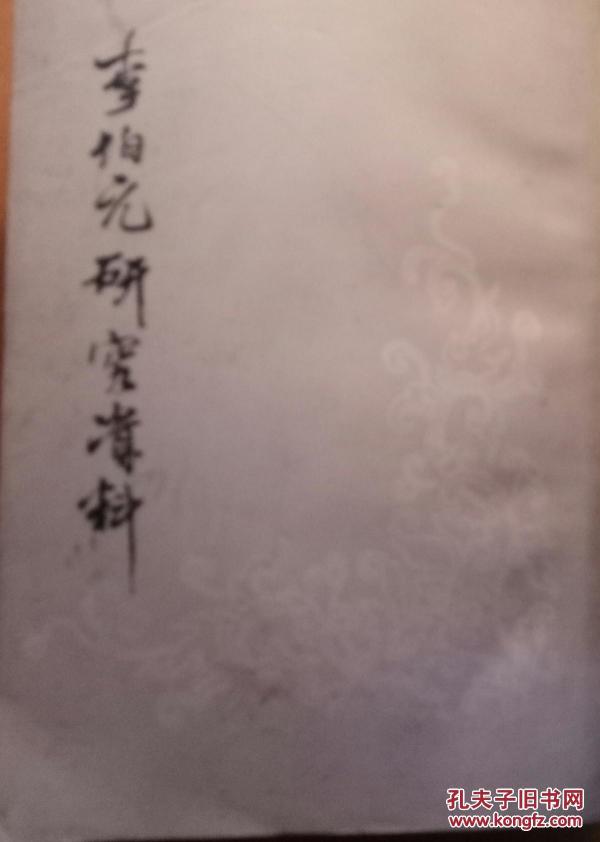 李伯元研究资料
孔夫子旧书网
www.kongfz.com